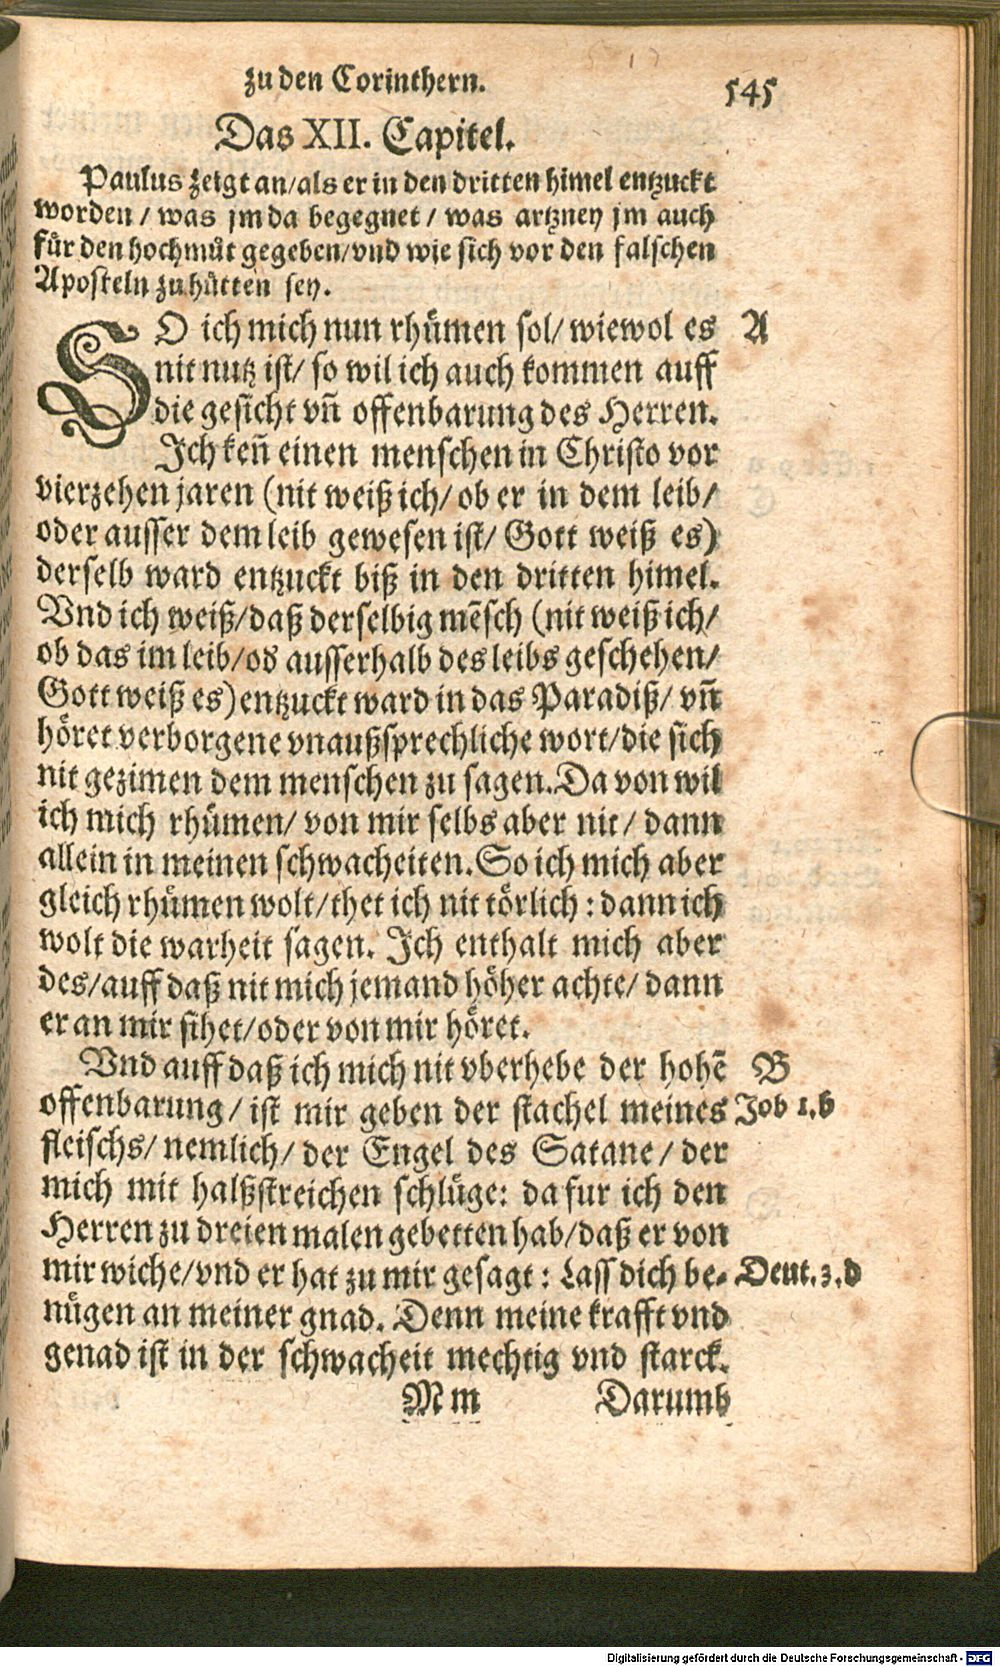 zu den Corinthern.
545
Das XII. Capitel.
Paulus zeigt an/als er in den dritten himel entzuckt
worden / was jm da begegnet / was artzney jm auch
für den hochmůt gegeben/vnd wie sich vor den falschen
Aposteln zu hütten sey.
SO ich mich nun rhümen sol/ wiewol es
A
nit nutz ist/ so wil ich auch kommen auff
die gesicht vñ offenbarung des Herren.
Ich keñ einen menschen in Christo vor
vierzehen jaren (nit weiß ich/ ob er in dem leib/
oder ausser dem leib gewesen ist/ Gott weiß es)
derselb ward entzuckt biß in den dritten himel.
Vnd ich weiß/daß derselbig mẽsch (nit weiß ich/
ob das im leib/ob ausserhalb des leibs geschehen/
Gott weiß es) entzuckt ward in das Paradiß/ vñ
höret verborgene vnaußsprechliche wort/die sich
nit gezimen dem menschen zu sagen. Da von wil
ich mich rhümen/ von mir selbs aber nit/ dann
allein in meinen schwacheiten. So ich mich aber
gleich rhümen wolt/thet ich nit törlich : dann ich
wolt die warheit sagen. Ich enthalt mich aber
des/auff daß nit mich jemand höher achte/ dann
er an mir sihet/oder von mir höret.
Vnd auff daß ich mich nit vberhebe der hohẽ
B
offenbarung/ ist mir geben der stachel meines
Job 1.b
fleischs/ nemlich/ der Engel des Satane/ der
mich mit halßstreichen schlüge: da fur ich den
Herren zu dreien malen gebetten hab/daß er von
mir wiche/vnd er hat zu mir gesagt : Lass dich be-
Deut. 3. d
nügen an meiner gnad. Denn meine krafft vnd
genad ist in der schwacheit mechtig vnd starck.
M m
Darumb
Digitalisierung gefördert durch die Deutsche Forschungsgemeinschaft - DFG